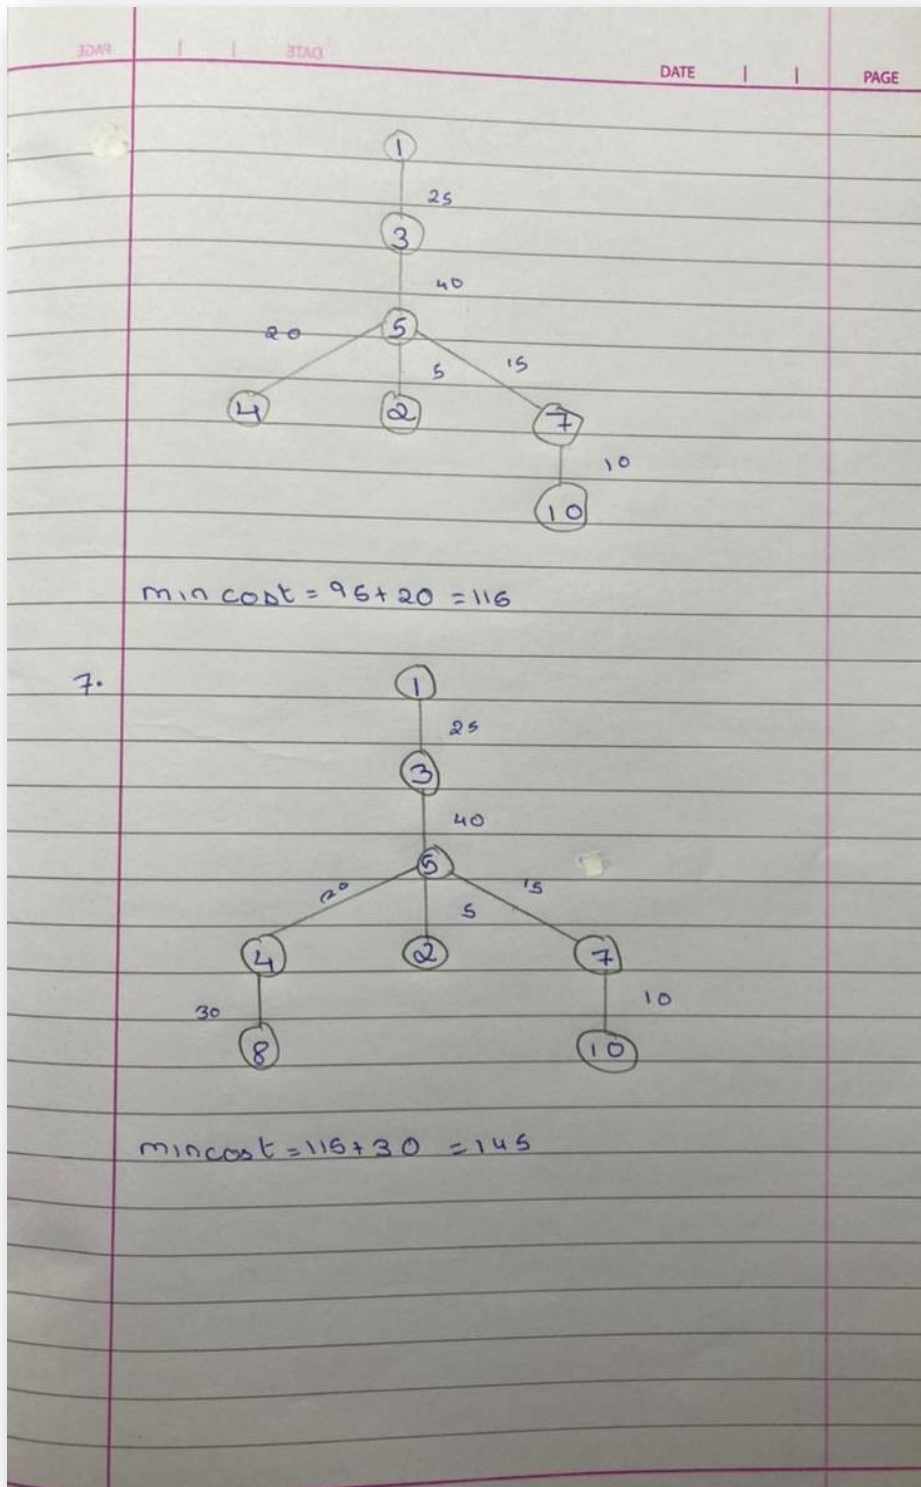 PAGE DATE
DATE PAGE
1
25
3
40
5
20 5 15
4 2 7
10
10
min cost = 95+20 = 115
7.
1
25
3
40
5
20 5 15
4 2 7
30 10
8 10
min cost = 115+30 = 145